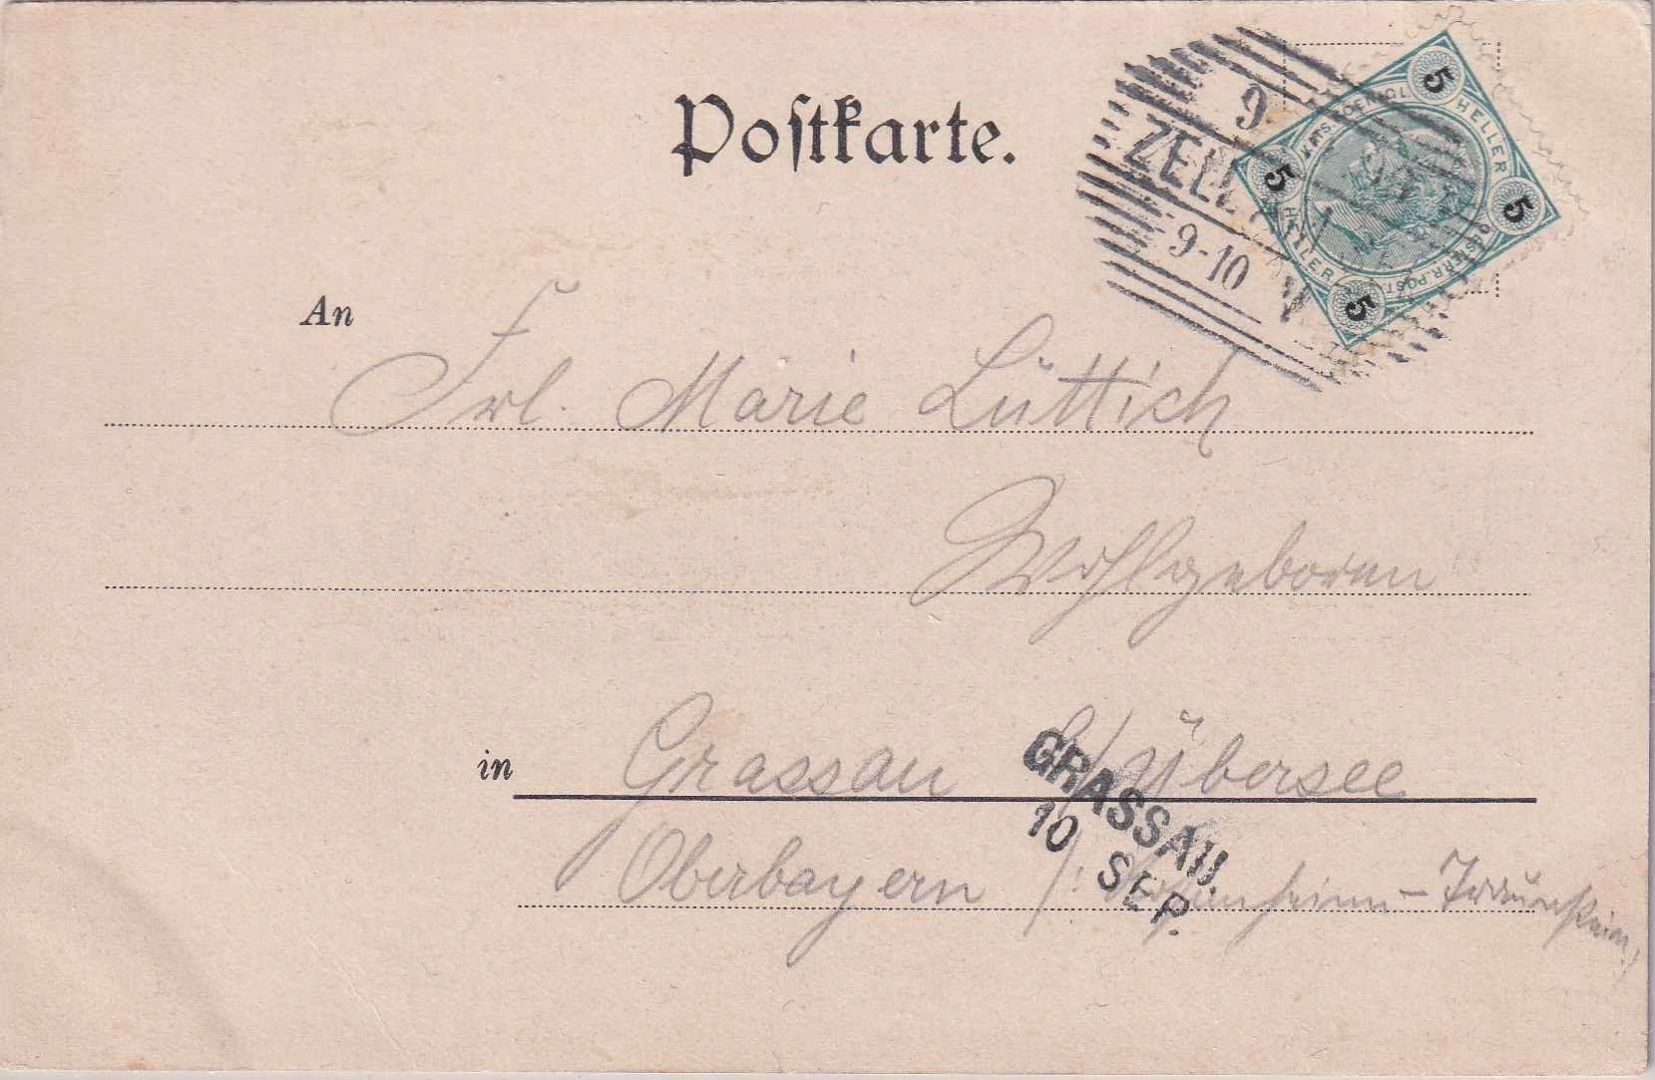 Postkarte.
9.
ZELL A/
9-10 V
5 5 5 5
HELLER
HELLER
OESTERR. POST.
An
Frl. Marie Lüttich
Wohlgeboren
in Grassau b/Übersee
GRASSAU.
10 SEP.
Oberbayern